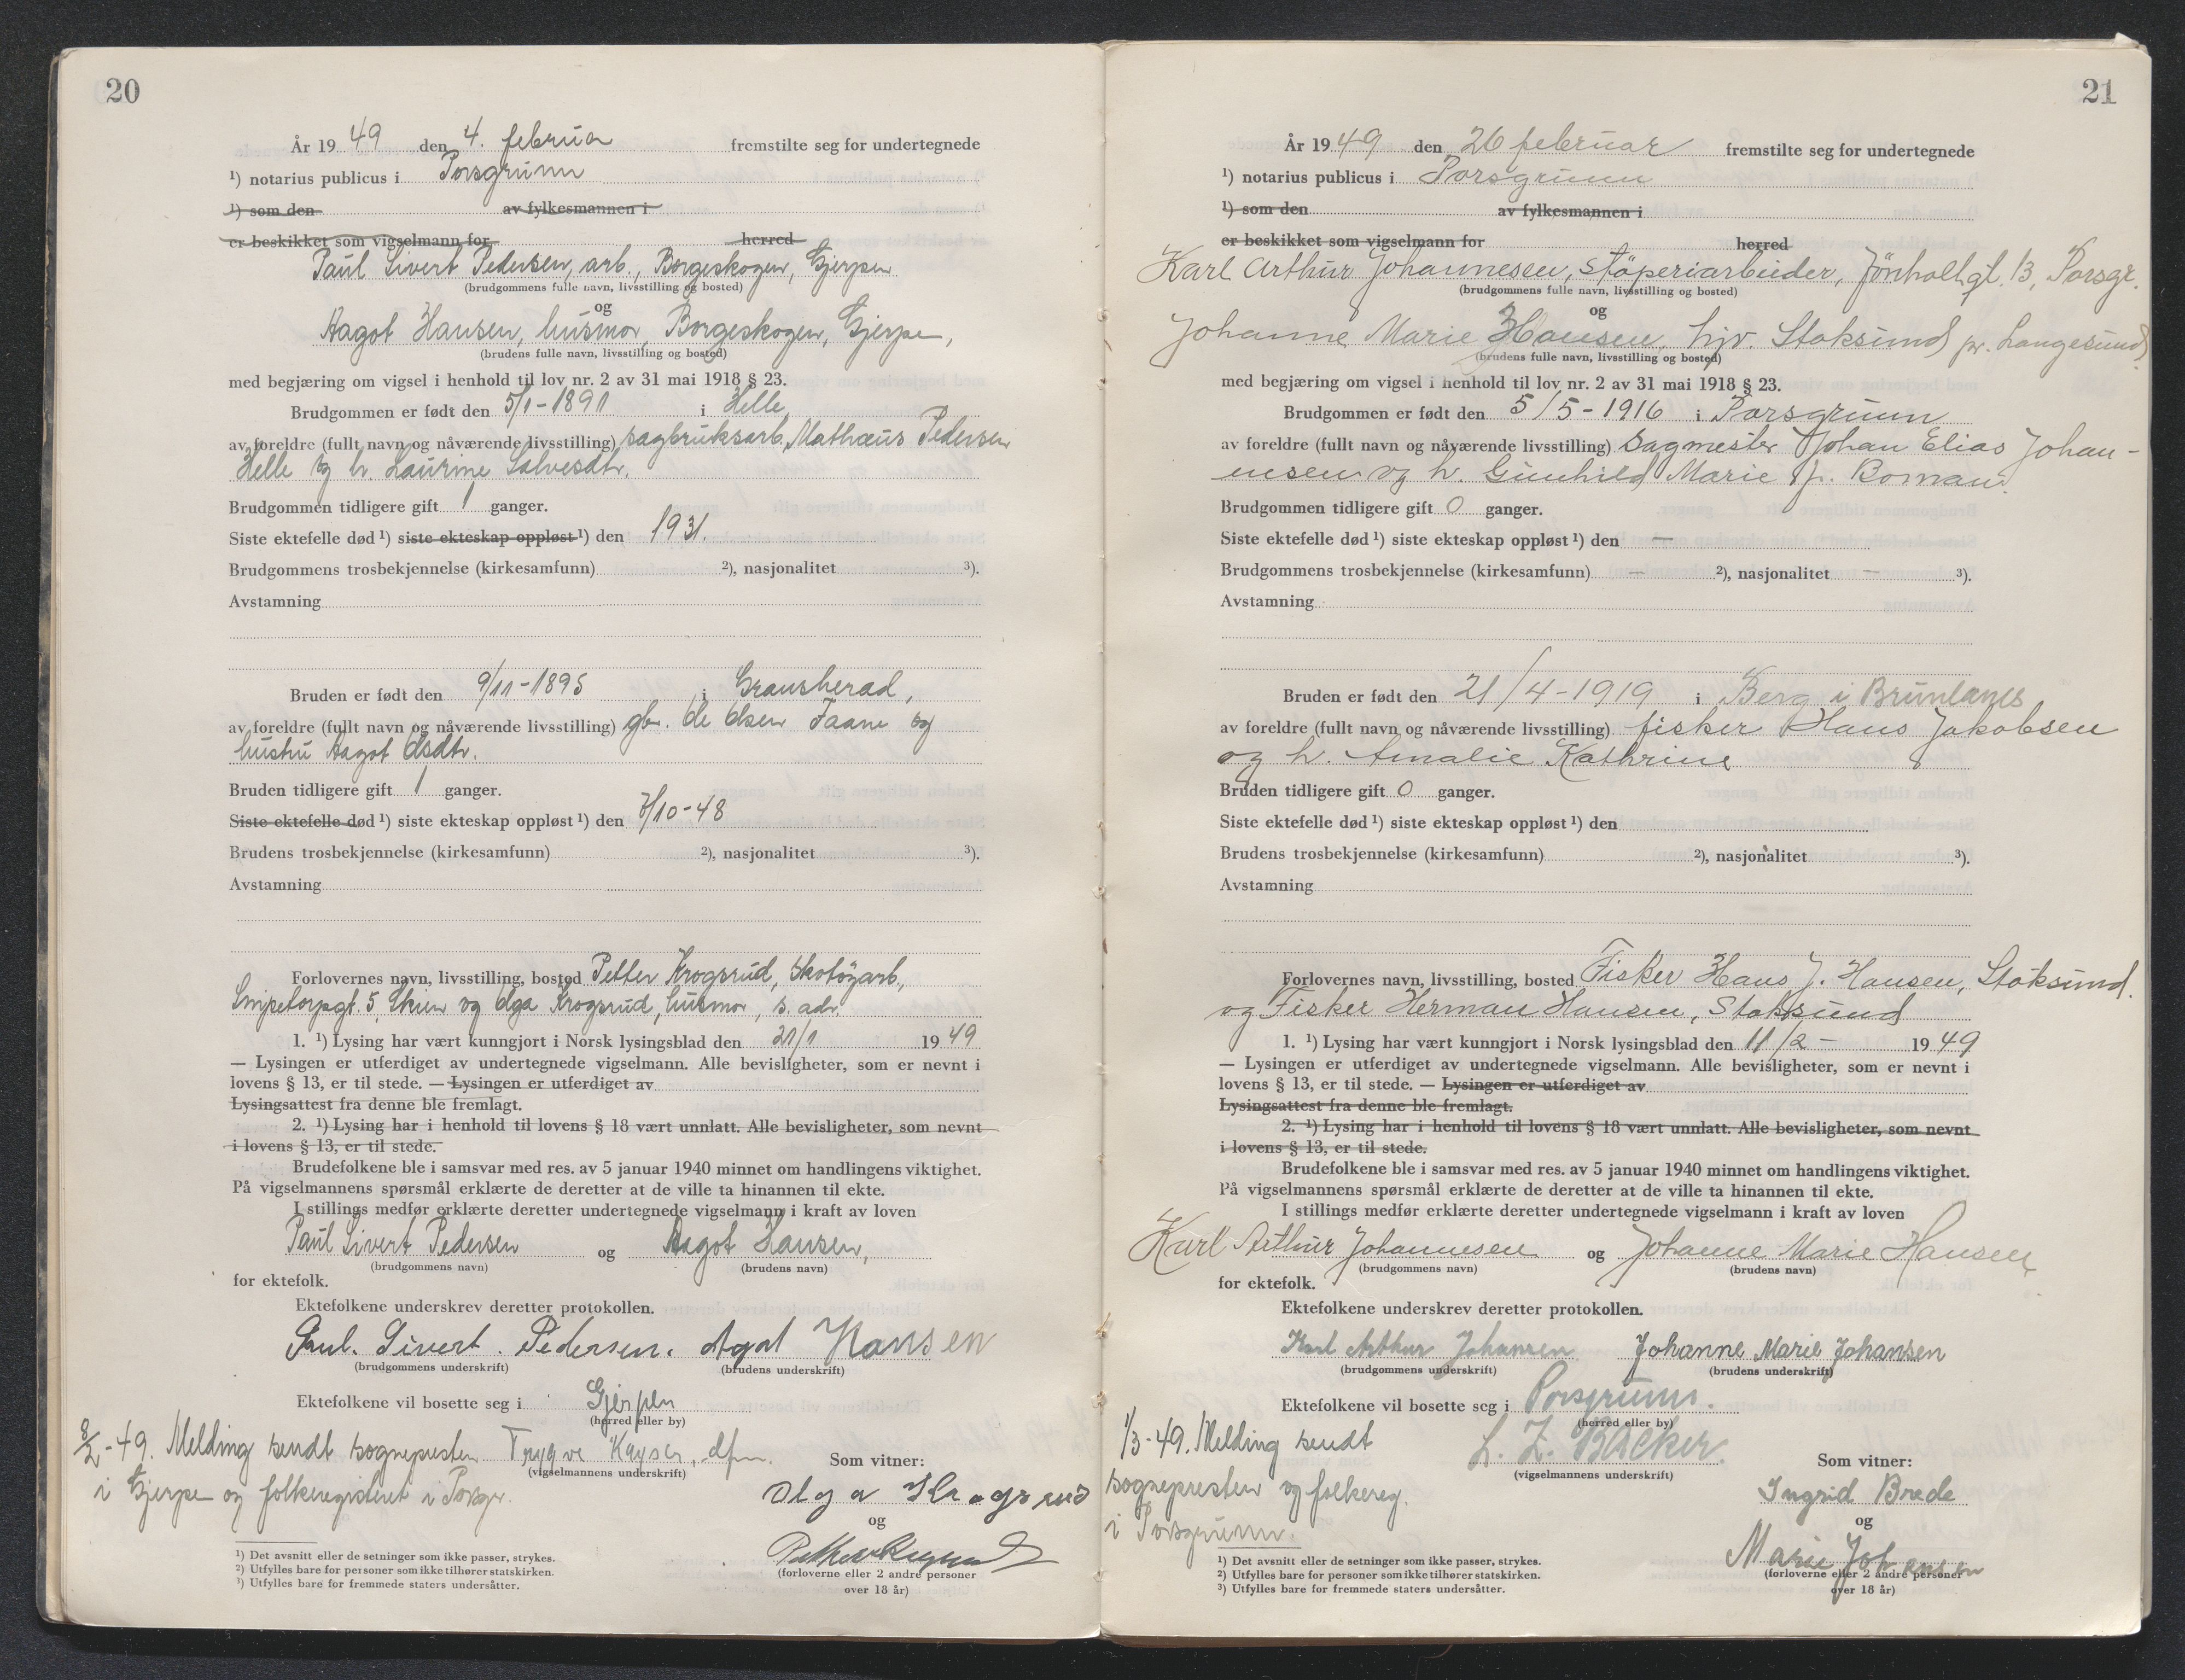 20
År 19 49 den 4. februar fremstilte seg for undertegnede
¹) notarius publicus i Porsgrunn
¹) som den av fylkesmannen i
er beskikket som vigselmann for herred
Paul Sivert Pedersen, arb., Borgeskogen, Gjerpen
(brudgommens fulle navn, livsstilling og bosted)
og
Aagot Hansen, husmor, Borgeskogen, Gjerpen,
(brudens fulle navn, livsstilling og bosted)
med begjæring om vigsel i henhold til lov nr. 2 av 31 mai 1918 § 23.
Brudgommen er født den 5/1-1891 i Helle
av foreldre (fullt navn og nåværende livsstilling) sagbruksarb. Mathæus Pedersen
Helle og h. Laurine Salvesdtr.
Brudgommen tidligere gift 1 ganger.
Siste ektefelle død ¹) siste ekteskap oppløst ¹) den 1931.
Brudgommens trosbekjennelse (kirkesamfunn) ²), nasjonalitet ³).
Avstamning
Bruden er født den 9/11-1895 i Gransherad,
av foreldre (fullt navn og nåværende livsstilling) gbr. Ole Olsen Faane og
hustru Aagot Olsdtr.
Bruden tidligere gift 1 ganger.
Siste ektefelle død ¹) siste ekteskap oppløst ¹) den 7/10-48
Brudens trosbekjennelse (kirkesamfunn) ²), nasjonalitet ³).
Avstamning
Forlovernes navn, livsstilling, bosted Petter Krogsrud, skotøyarb.,
Snipetorpgt. 5, Skien og Olga Krogsrud, husmor, s. adr.
1. ¹) Lysing har vært kunngjort i Norsk lysingsblad den 21/1 19 49
— Lysingen er utferdiget av undertegnede vigselmann. Alle bevisligheter, som er nevnt i
lovens § 13, er til stede. — Lysingen er utferdiget av
Lysingsattest fra denne ble fremlagt.
2. ¹) Lysing har i henhold til lovens § 18 vært unnlatt. Alle bevisligheter, som nevnt
i lovens § 13, er til stede.
Brudefolkene ble i samsvar med res. av 5 januar 1940 minnet om handlingens viktighet.
På vigselmannens spørsmål erklærte de deretter at de ville ta hinannen til ekte.
I stillings medfør erklærte deretter undertegnede vigselmann i kraft av loven
Paul Sivert Pedersen og Aagot Hansen,
(brudgommens navn) (brudens navn)
for ektefolk.
Ektefolkene underskrev deretter protokollen.
Paul. Sivert. Pedersen. Agot Hansen
(brudgommens underskrift) (brudens underskrift)
Ektefolkene vil bosette seg i Gjerpen
(herred eller by)
8/2-49. Melding sendt sognepresten Trygve Kayser, dfm.
(vigselmannens underskrift) Som vitner:
i Gjerpen og folkeregisteret i Porsgr.
Olga Krogsrud
og
Petter Krogsrud
(forloverne eller 2 andre personer
over 18 år)
¹) Det avsnitt eller de setninger som ikke passer, strykes.
²) Utfylles bare for personer som ikke tilhører statskirken.
³) Utfylles bare for fremmede staters undersåtter.
21
År 19 49 den 26 februar fremstilte seg for undertegnede
¹) notarius publicus i Porsgrunn
¹) som den av fylkesmannen i
er beskikket som vigselmann for herred
Karl Arthur Johannesen, støperiarbeider, Jønholtgt. 13, Porsgr.
(brudgommens fulle navn, livsstilling og bosted)
og
Johanne Marie Hansen, hjv. Stoksund pr. Langesund.
(brudens fulle navn, livsstilling og bosted)
med begjæring om vigsel i henhold til lov nr. 2 av 31 mai 1918 § 23.
Brudgommen er født den 5/5-1916 i Porsgrunn
av foreldre (fullt navn og nåværende livsstilling) Sagmester Johan Elias Johan-
ensen og h. Gunhild Marie f. Boman.
Brudgommen tidligere gift 0 ganger.
Siste ektefelle død ¹) siste ekteskap oppløst ¹) den —
Brudgommens trosbekjennelse (kirkesamfunn) — ²), nasjonalitet — ³).
Avstamning
Bruden er født den 21/4-1919 i Berg i Brunlanes
av foreldre (fullt navn og nåværende livsstilling) fisker Hans Jakobsen
og h. Amalie Kathrine
Bruden tidligere gift 0 ganger.
Siste ektefelle død ¹) siste ekteskap oppløst ¹) den
Brudens trosbekjennelse (kirkesamfunn) ²), nasjonalitet ³).
Avstamning
Forlovernes navn, livsstilling, bosted Fisker Hans J. Hansen, Stoksund.
og Fisker Herman Hansen, Stoksund
1. ¹) Lysing har vært kunngjort i Norsk lysingsblad den 11/2 - 19 49
— Lysingen er utferdiget av undertegnede vigselmann. Alle bevisligheter, som er nevnt i
lovens § 13, er til stede. — Lysingen er utferdiget av
Lysingsattest fra denne ble fremlagt.
2. ¹) Lysing har i henhold til lovens § 18 vært unnlatt. Alle bevisligheter, som nevnt
i lovens § 13, er til stede.
Brudefolkene ble i samsvar med res. av 5 januar 1940 minnet om handlingens viktighet.
På vigselmannens spørsmål erklærte de deretter at de ville ta hinannen til ekte.
I stillings medfør erklærte deretter undertegnede vigselmann i kraft av loven
Karl Arthur Johannesen og Johanne Marie Hansen
(brudgommens navn) (brudens navn)
for ektefolk.
Ektefolkene underskrev deretter protokollen.
Karl Arthur Johansen Johanne Marie Johansen
(brudgommens underskrift) (brudens underskrift)
Ektefolkene vil bosette seg i Porsgrunn.
(herred eller by)
1/3-49. Melding sendt L. Z. Backer.
(vigselmannens underskrift) Som vitner:
sognepresten og folkereg.
i Porsgrunn.
Ingrid Brede
og
Marie Johansen
(forloverne eller 2 andre personer
over 18 år)
¹) Det avsnitt eller de setninger som ikke passer, strykes.
²) Utfylles bare for personer som ikke tilhører statskirken.
³) Utfylles bare for fremmede staters undersåtter.